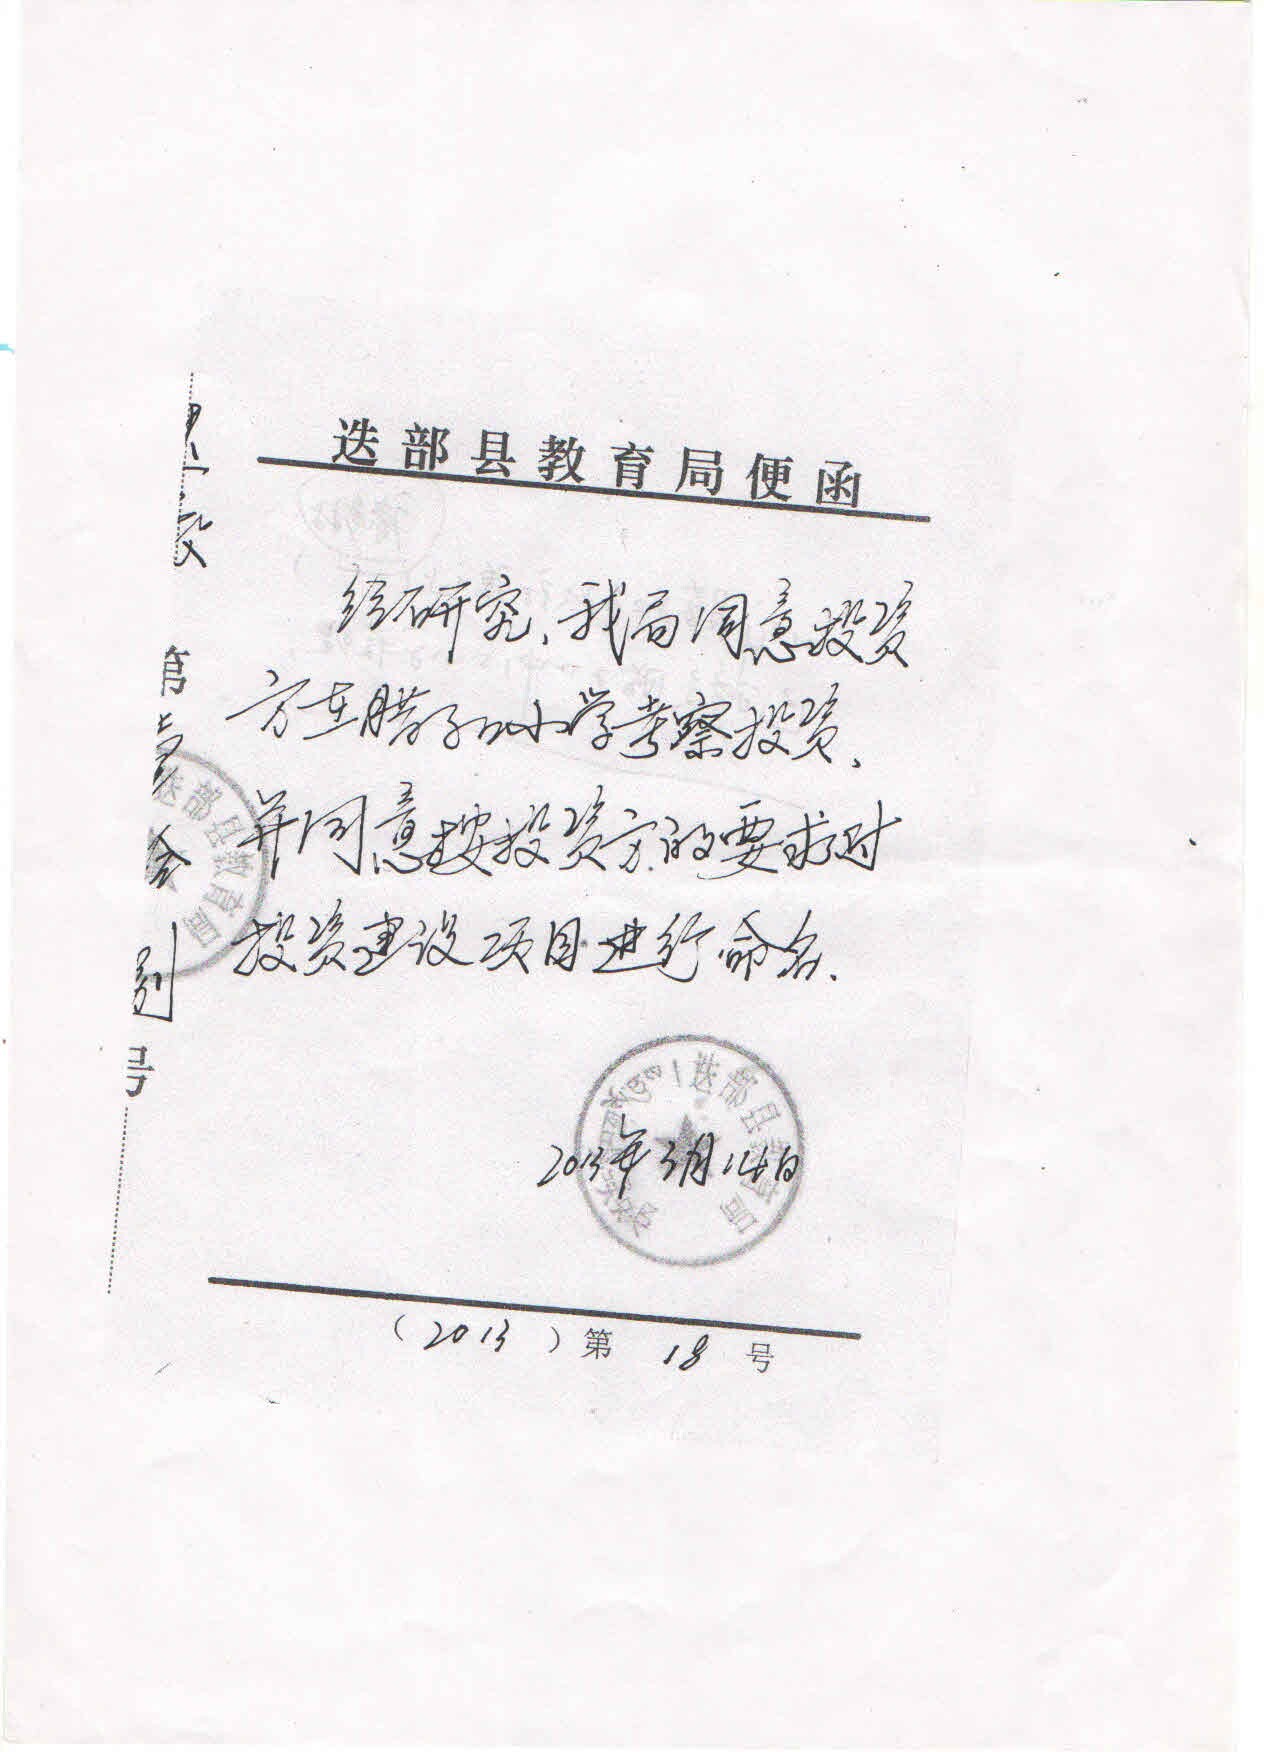 迭部县教育局便函
经研究、我局同意投资
方在腊子口小学考察投资、
并同意按投资方的要求对
投资建设项目进行命名.
迭部县教育局
2013年3月14日
(2013)第 18 号
第
号
迭部县教育局